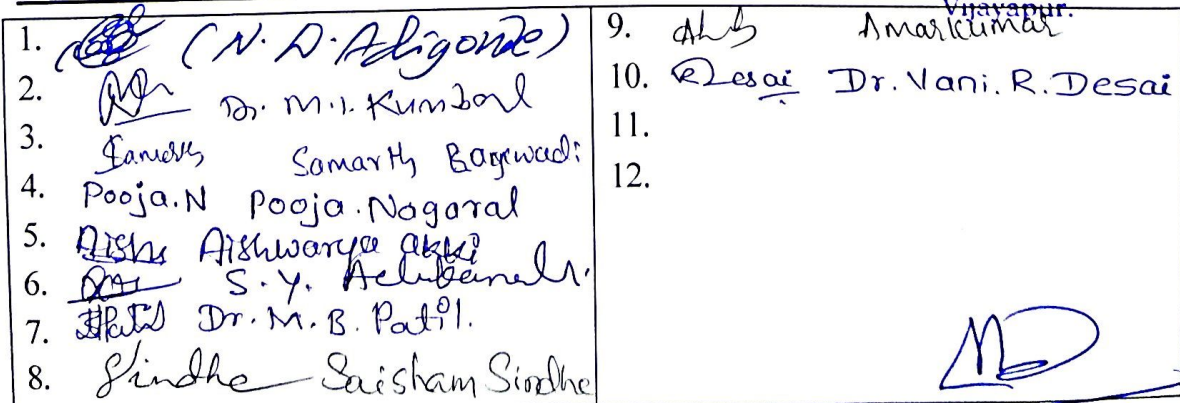 1. (N. D. Adigonde)
2. Dr. M. I. Kumbar
3. Samarth Samarth Bagewadi
4. Pooja.N Pooja.Nagaral
5. Aishu Aishwarya akki
6. S. Y.
7. Dr. M. B. Patil.
8. Sindhe Saisham Sindhe
Vijayapur.
9. Amarkumar
10. Desai Dr. Vani. R. Desai
11.
12.